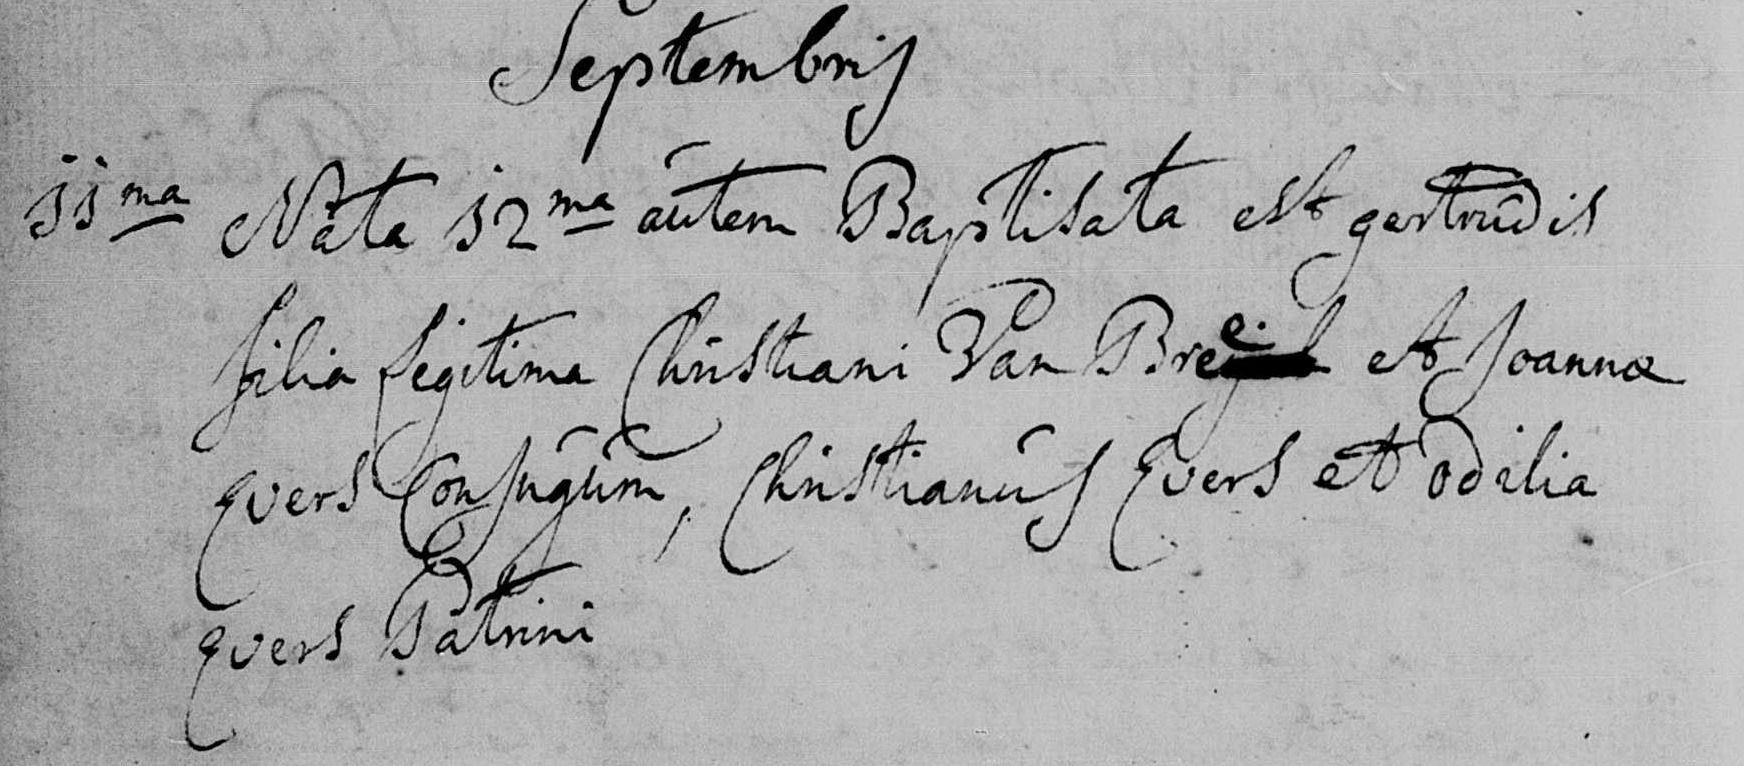 Septembris
11ma Nata 12ma autem Baptisata est gertrudis
filia legitima Christiani Van et Joannæ
Evers Conjugum, Christianus Evers et Odilia
Evers Patrini